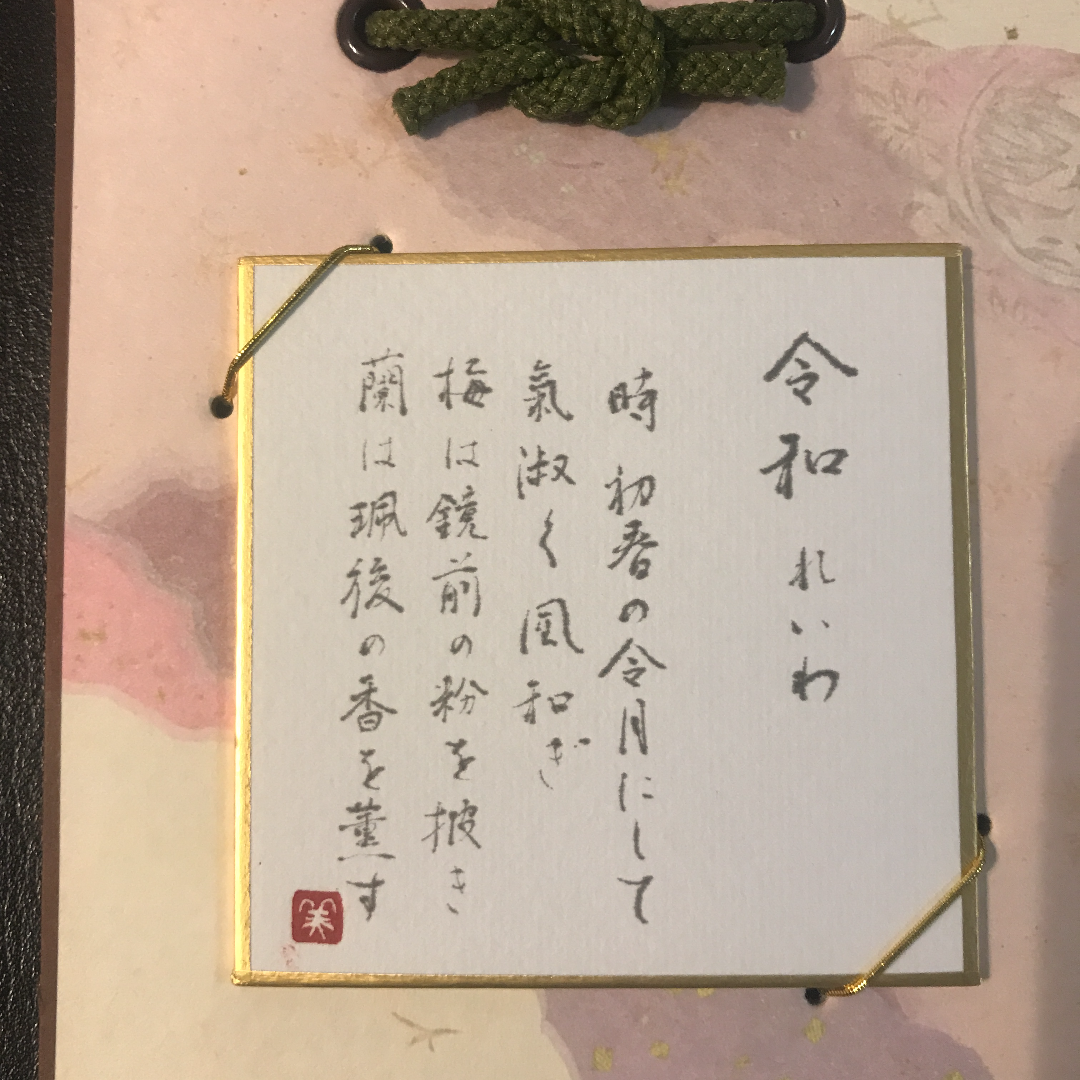 令和 れいわ
時 初春の令月にして
氣淑く風和ぎ
梅は鏡前の粉を披き
蘭は珮後の香を薫す
美